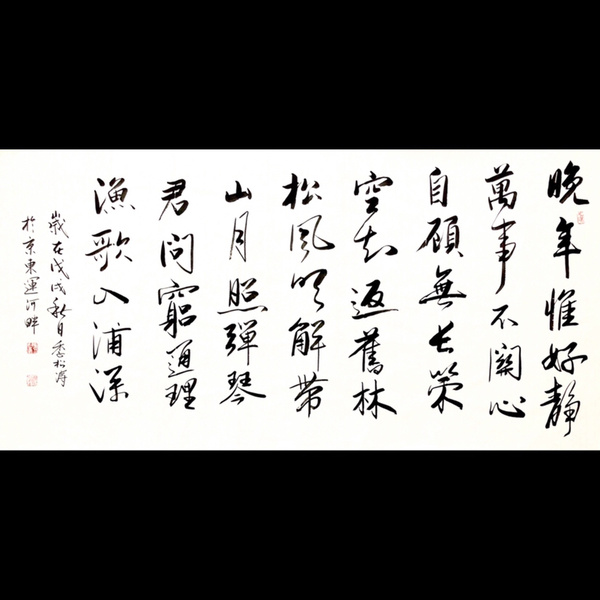 晚年惟好靜
萬事不關心
自顧無長策
空知返舊林
松風吹解帶
山月照彈琴
君問窮通理
漁歌入浦深
歲在戊戌秋月季松濤
於京東運河畔